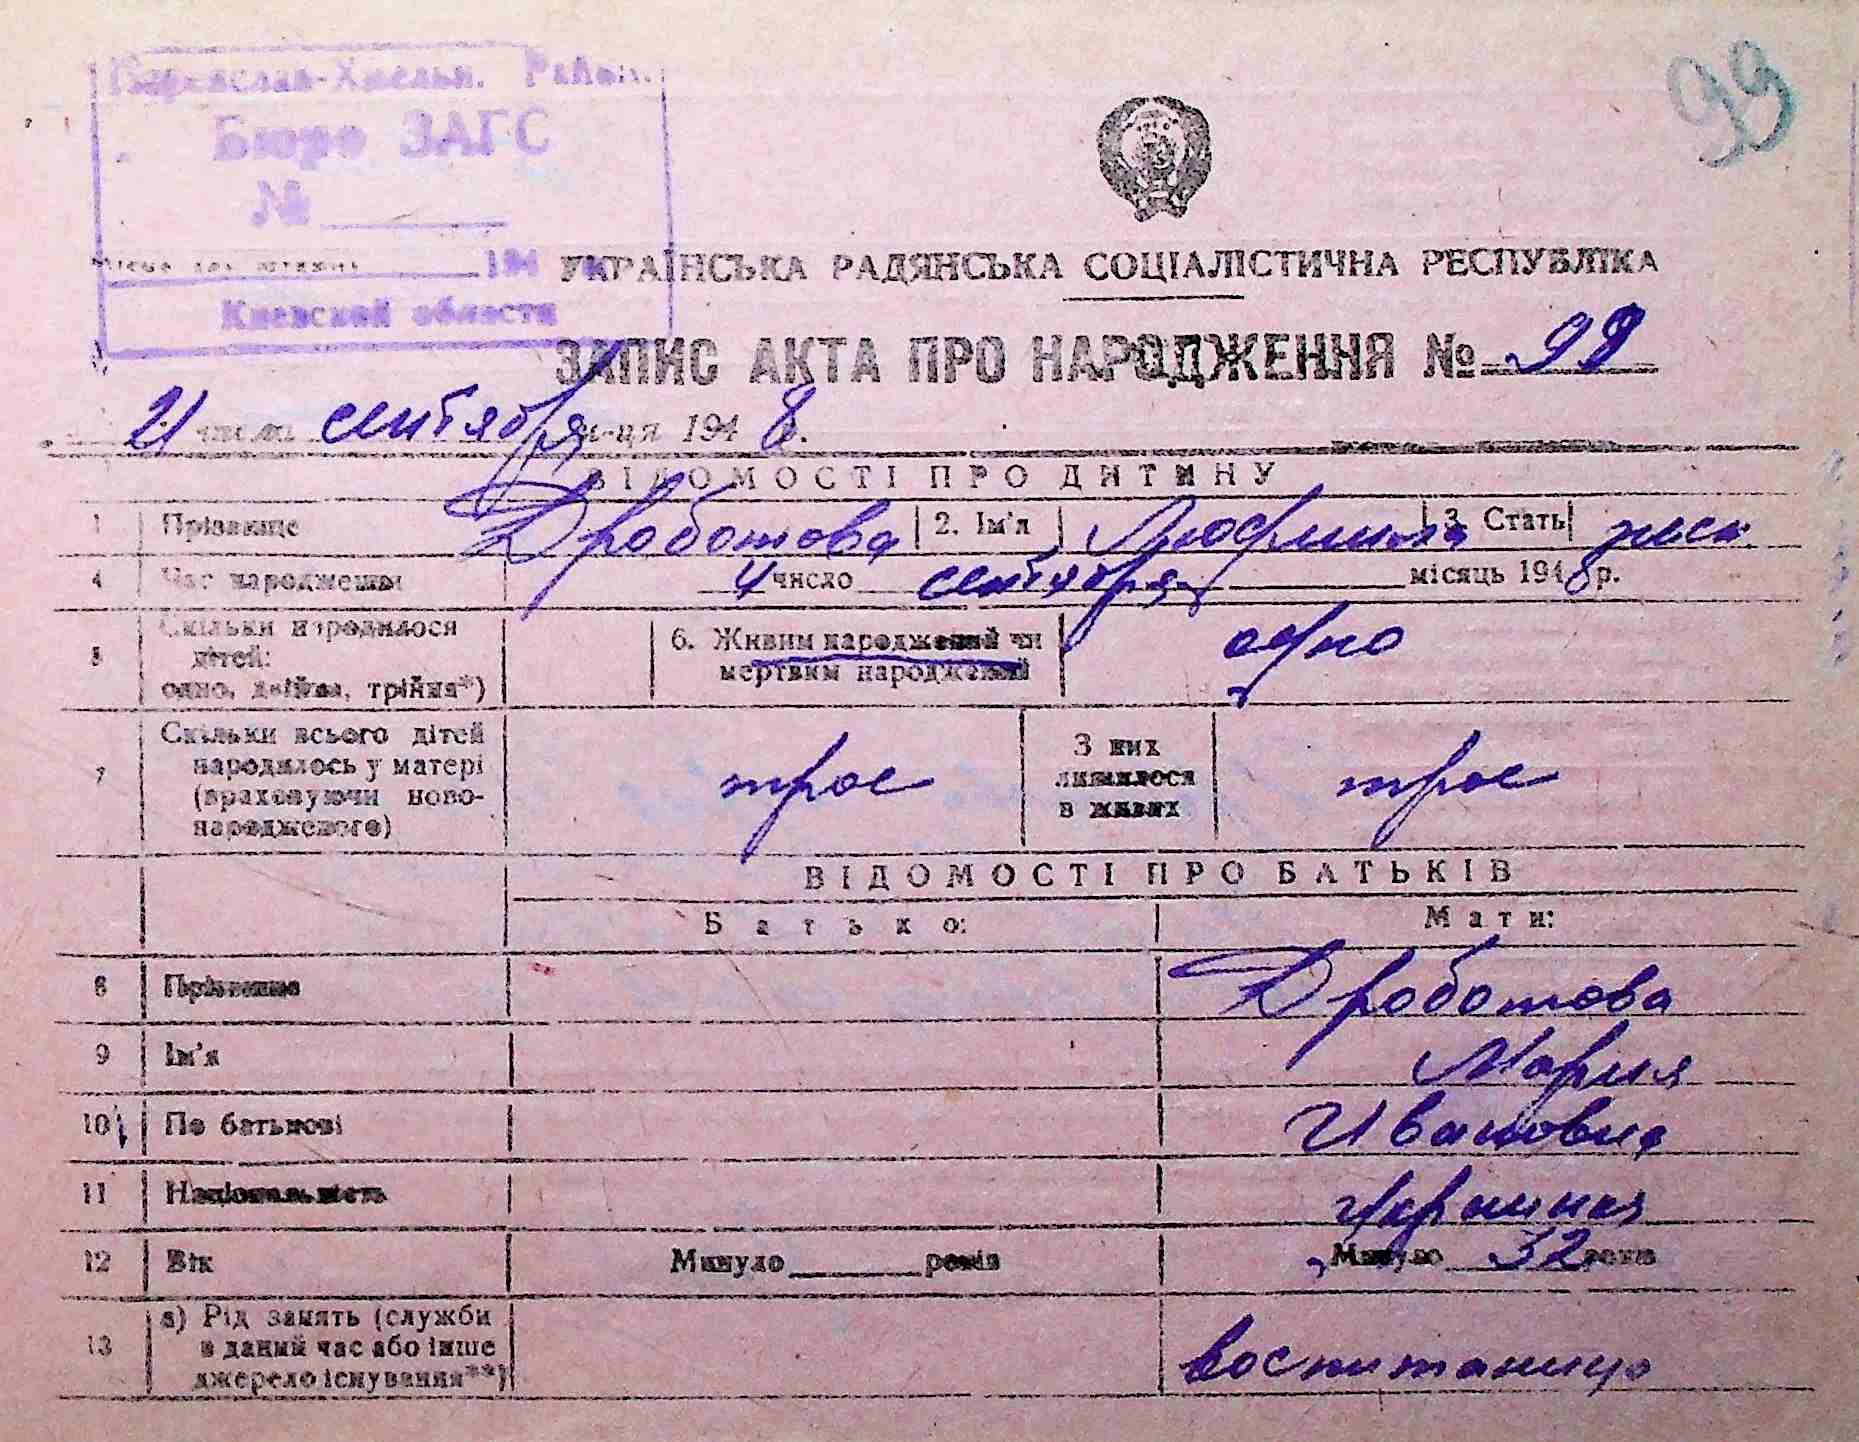 99
Переяслав-Хмельн. Район.
Бюро ЗАГС
№
194
Киевской области
УКРАЇНСЬКА РАДЯНСЬКА СОЦІАЛІСТИЧНА РЕСПУБЛІКА
ЗАПИС АКТА ПРО НАРОДЖЕННЯ № 99
21 числа сентября м-ця 1948 р.
ВІДОМОСТІ ПРО ДИТИНУ
1 Прізвище Дроботова 2. Ім'я Людмила 3. Стать женск.
4 Час народження 4 число сентября місяць 1948 р.
5 Скільки народилося
дітей:
одно, двійня, трійня*)
6. Живим народжений чи
мертвим народжений
одно
7 Скільки всього дітей
народилось у матері
(враховуючи ново-
народженого)
трое
З них
лишилося
в живих
трое
ВІДОМОСТІ ПРО БАТЬКІВ
Батько: Мати:
8 Прізвище Дроботова
9 Ім'я Мария
10 По батькові Ивановна
11 Національність
12 Вік Минуло років Минуло 32 років
13 а) Рід занять (служби
в даний час або інше
джерело існування**)